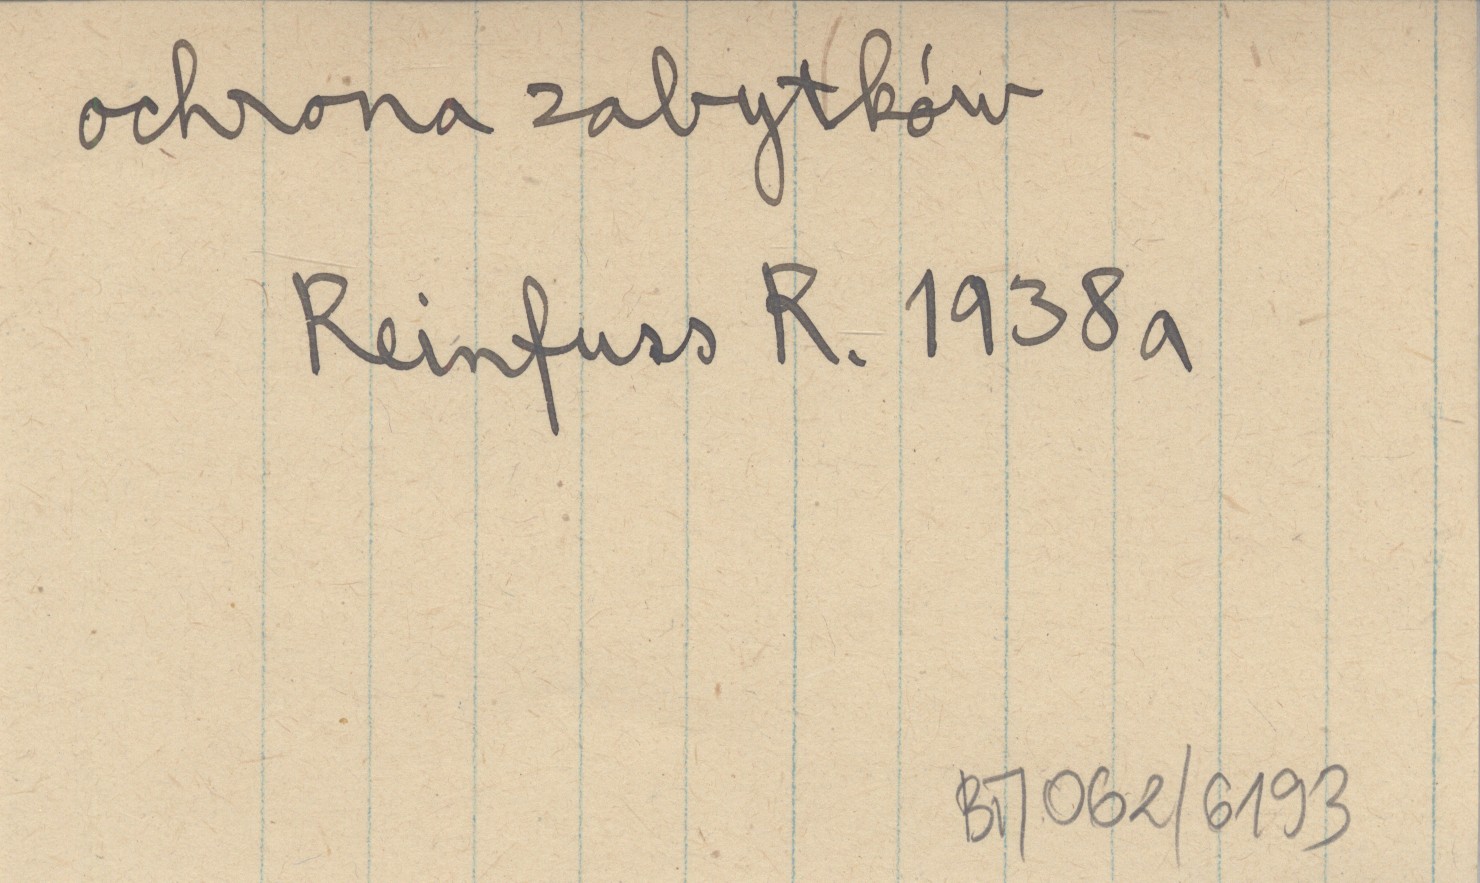 ochrona zabytków
Reinfuss R. 1938a
062/6193